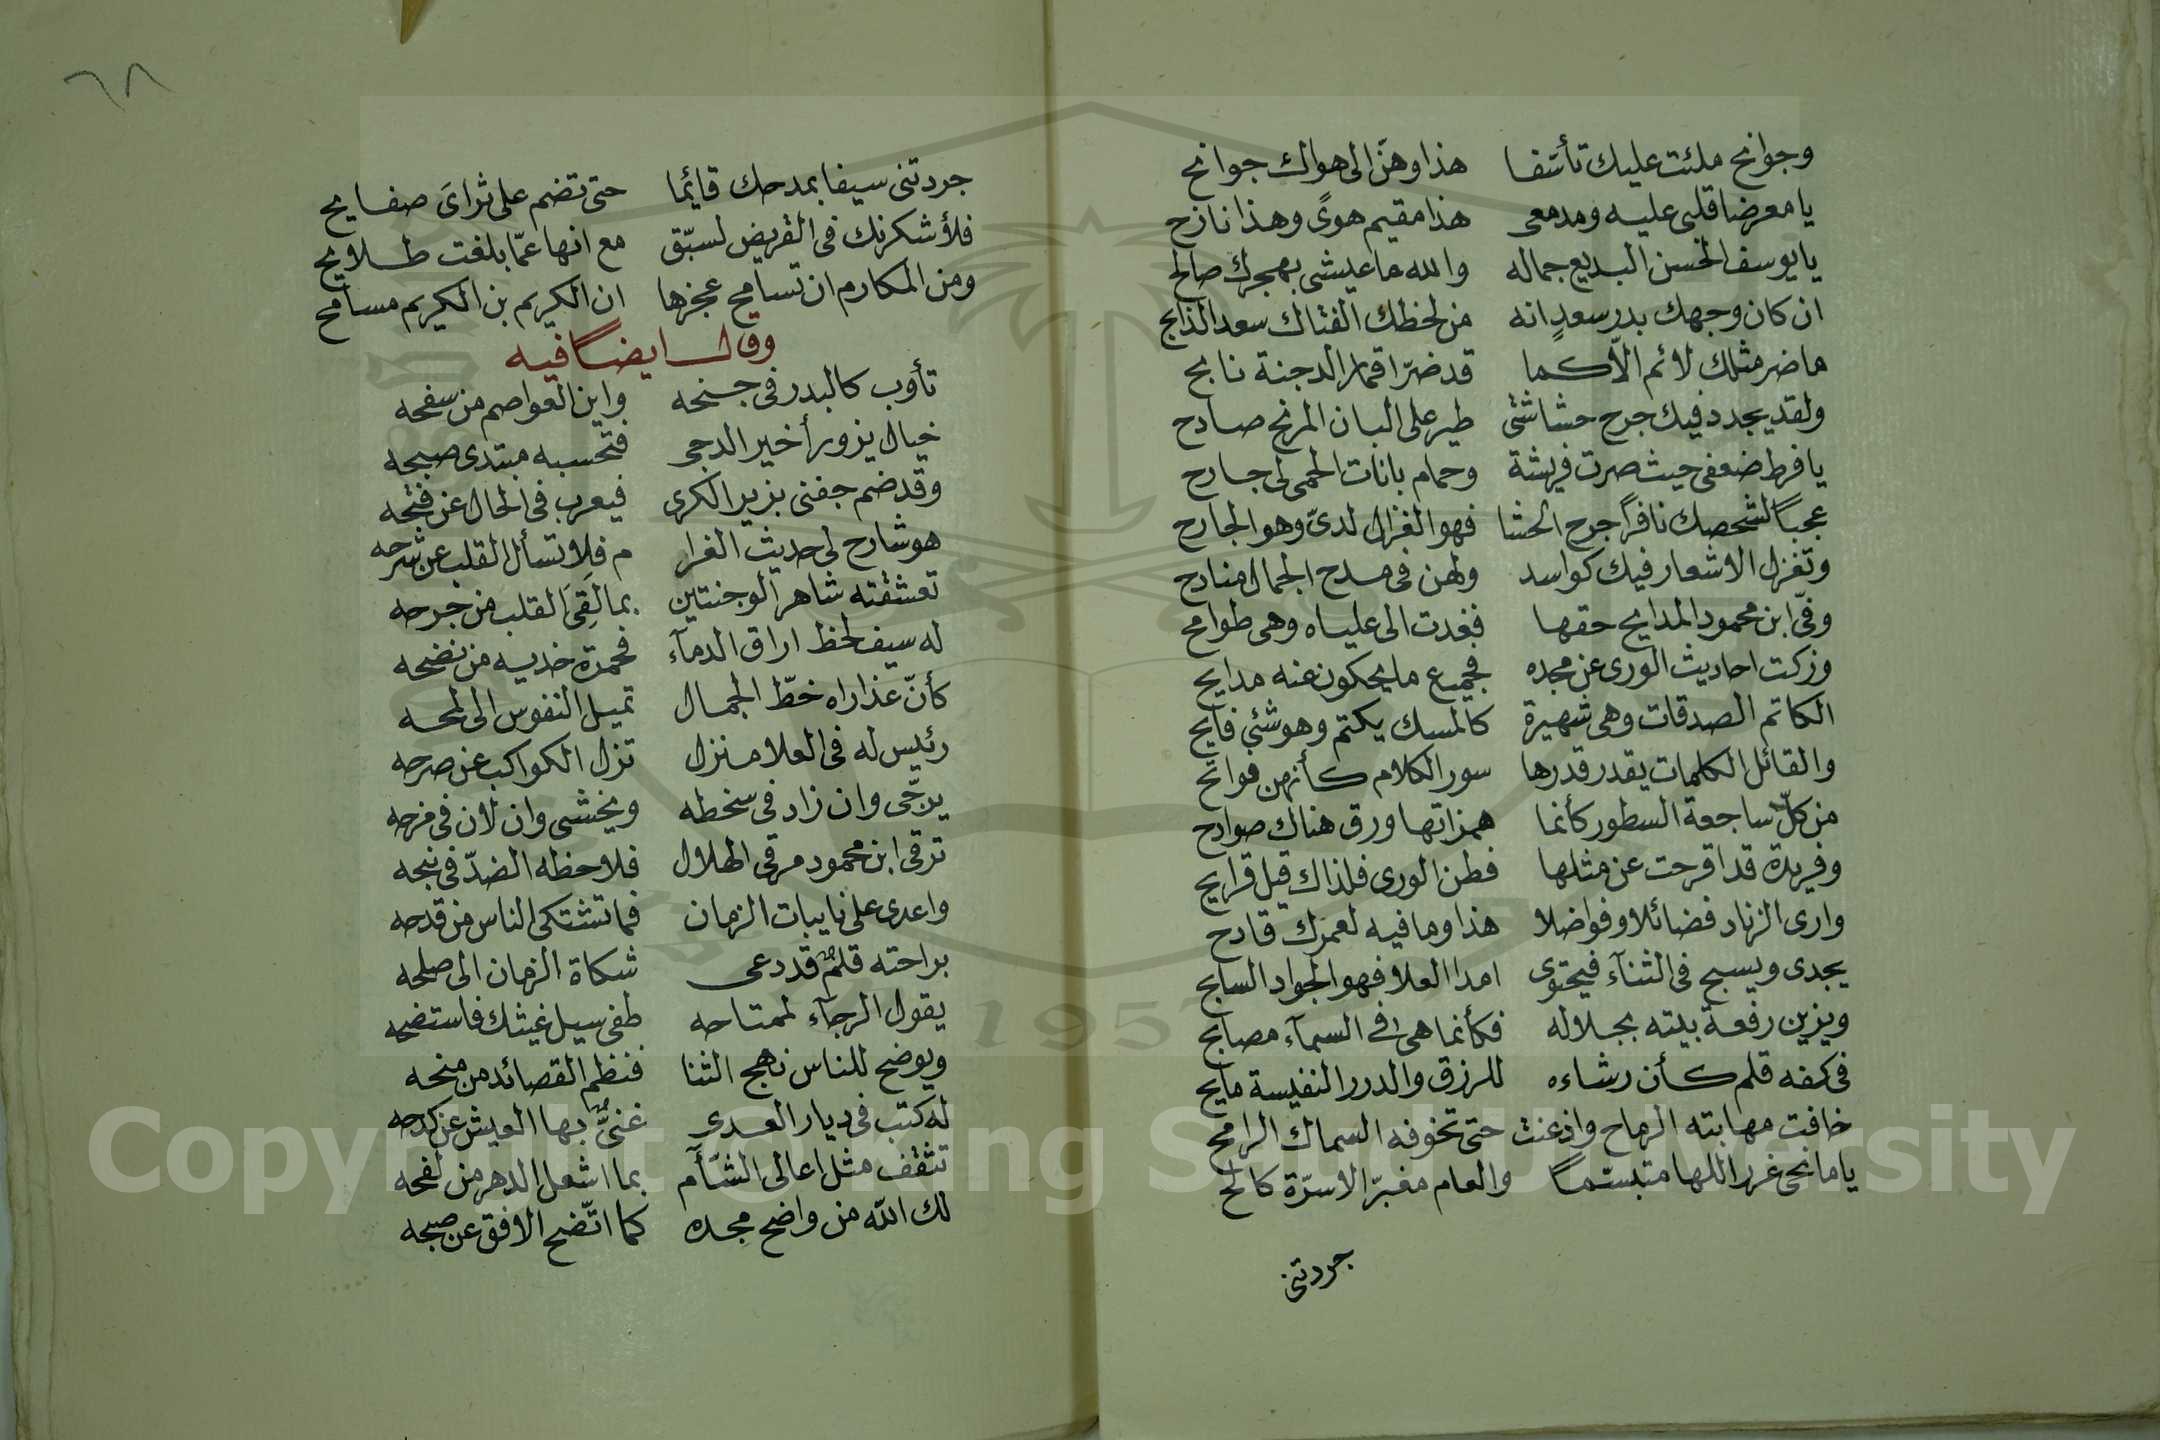 وجوانح ملئت عليك تأسفا هذا وهن الى هواك جوانح
يا معرضا قلبى عليه ومدمعى هذا مقيم هوًى وهذا نازح
يا يوسف الحسن البديع جماله والله ما عيشى بهجرك صالح
ان كان وجهك بدر سعدٍ انه من لحظك الفتاك سعد الذابح
ما ضر مثلك لائم الّا كما قد ضرّ اقمار الدجنة نابح
ولقد يجدد فيك جرح حشاشتى طير على البان المرنح صادح
يا فرط ضعفى حيث صرت فريشة وحمام بانات الحمى لى جارح
عجباً لشخصك نافراً جرح الحشا فهو الغزال لدىّ وهو الجارح
وتغزل الاشعار فيك كواسد ولهن فى مدح الجمال منادح
وفّى ابن محمود المدايح حقها فغدت الى علياه وهى طوامح
وزكت احاديث الورى عن مجده فجميع ما يحكون عنه مدايح
الكاتم الصدقات وهى شهيرة كالمسك يكتم وهو شئي فايح
والقائل الكلمات يقدر قدرها سور الكلام كأنهن فواتح
من كلّ ساجعة السطور كأنما همزاتها ورق هناك صوادح
وفريدة قد اقرحت عن مثلها فطن الورى فلذاك قيل قرايح
وارى الزناد فضائلا وفواضلا هذا وما فيه لعمرك قادح
يجدى ويسبح فى الثنآء فيحتوى امدا العلا فهو الجواد السابح
ويزين رفعة بيته بجلاله فكأنما هى فى السمآء مصابح
فى كفه قلم كأن رشاءه للرزق والدرر النفيسة مايح
خافت مهابته الرماح واذعنت حتى تخوفه السماك الرامح
يا مانحى غرر اللها متبسّماً والعام مغبرّ الاسرّة كالح
جردتنى
٦٨
جردتنى سيفا بمدحك قايما حتى تضم على ثراىَ صفايح
فلأشكرنك فى القريض لسبّق مع انها عمّا بلغت طلايح
ومن المكارم ان تسامح عجزها ان الكريم بن الكريم مسامح
وقال ايضا فيه
تأوب كالبدر فى جنحه واين العواصم من سفحه
خيال يزور أخير الدجى فتحسبه مبتدى صبحه
وقد ضم جفنى بزير الكرى فيعرب فى الحال عن فتحه
هو شارح لى حديث الغرا م فلا تسأل القلب عن شرحه
تعشقته شاهر الوجنتين بما لَقِىَ القلب من جرحه
له سيف لحظ اراق الدمآء فحمرة خديه من نضحه
كأنّ عذاراه خطّ الجمال تميل النفوس الى لمحه
رئيس له فى العلا منزل تزل الكواكب عن صرحه
يرجّى وان زاد فى سخطه ويخشى وان لان فى مزحه
ترقى ابن محمود مرقى الهلال فلاحظه الضدّ فى نبحه
واعدى على نايبات الزمان فما تشتكى الناس من قدحه
براحته قلمٌ قد دعى شكاة الزمان الى صلحه
يقول الرجآء لممتاحه طفى سيل غيثك فاستضحه
ويوضح للناس نهج الثنا فنظم القصائد من منحه
له كتب فى ديار العدى غنىٌّ بها العيش عن كدحه
تثقف مثل اعالى الشآم بما اشعل الدهر من لفحه
لك الله من واضح مجده كما اتّضح الافق عن صبحه
Copyright © King Saud University
1957